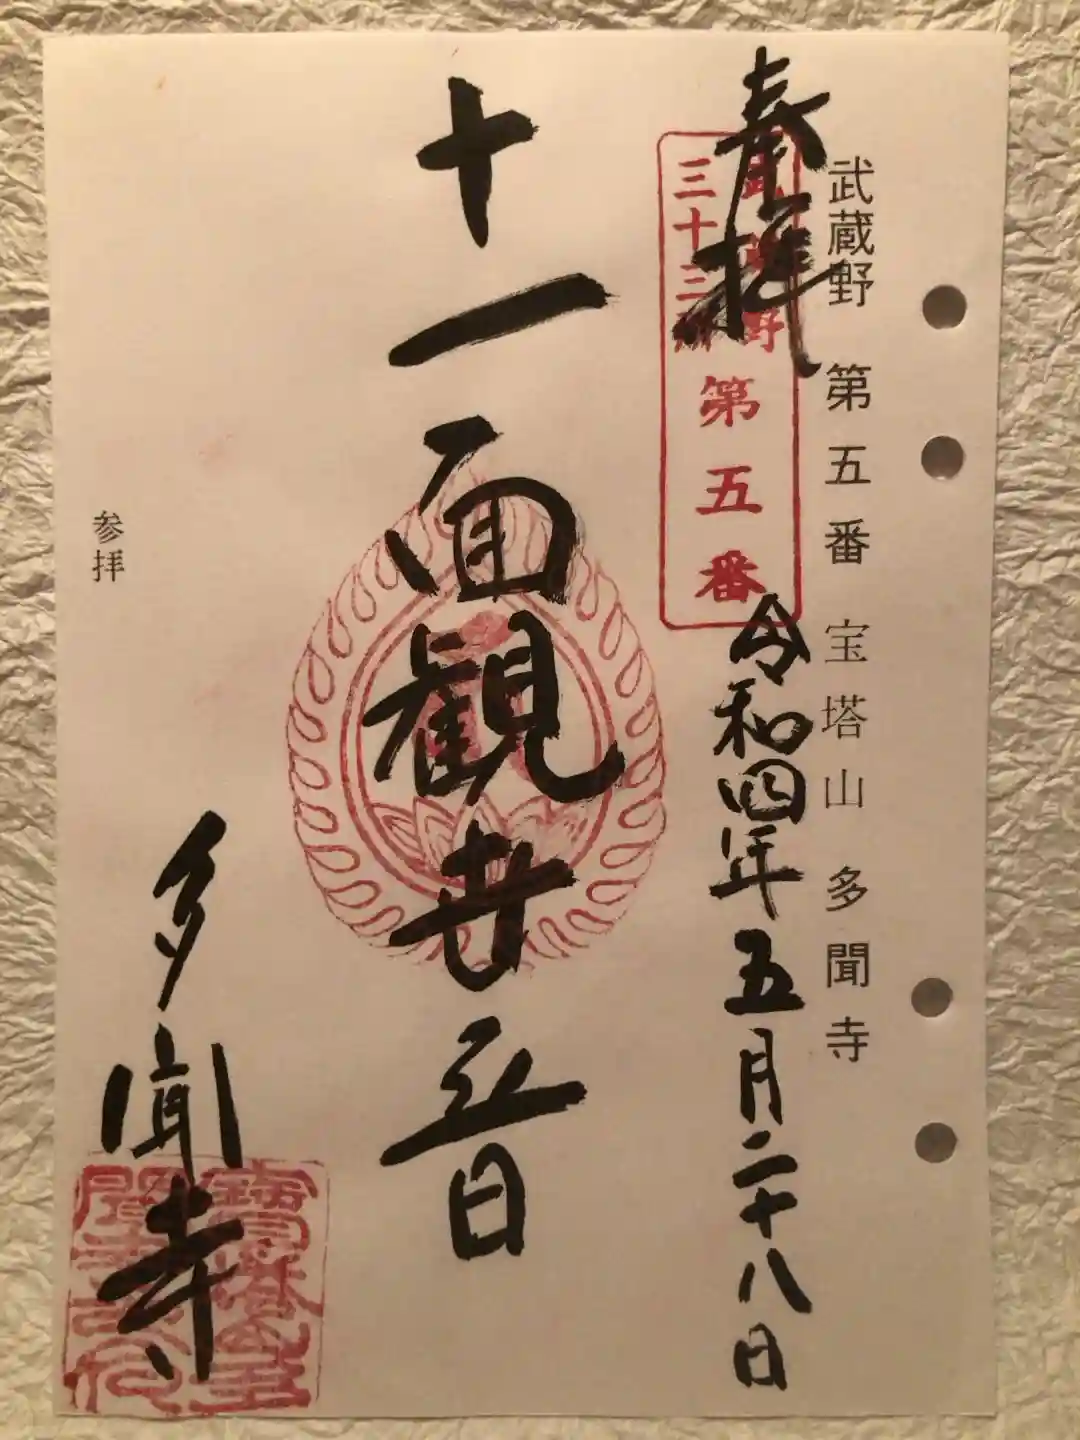 武蔵野 第五番 宝塔山 多聞寺
奉拝
武蔵野
三十三所
第五番
令和四年五月二十八日
十一面観世音
多聞寺
参拝